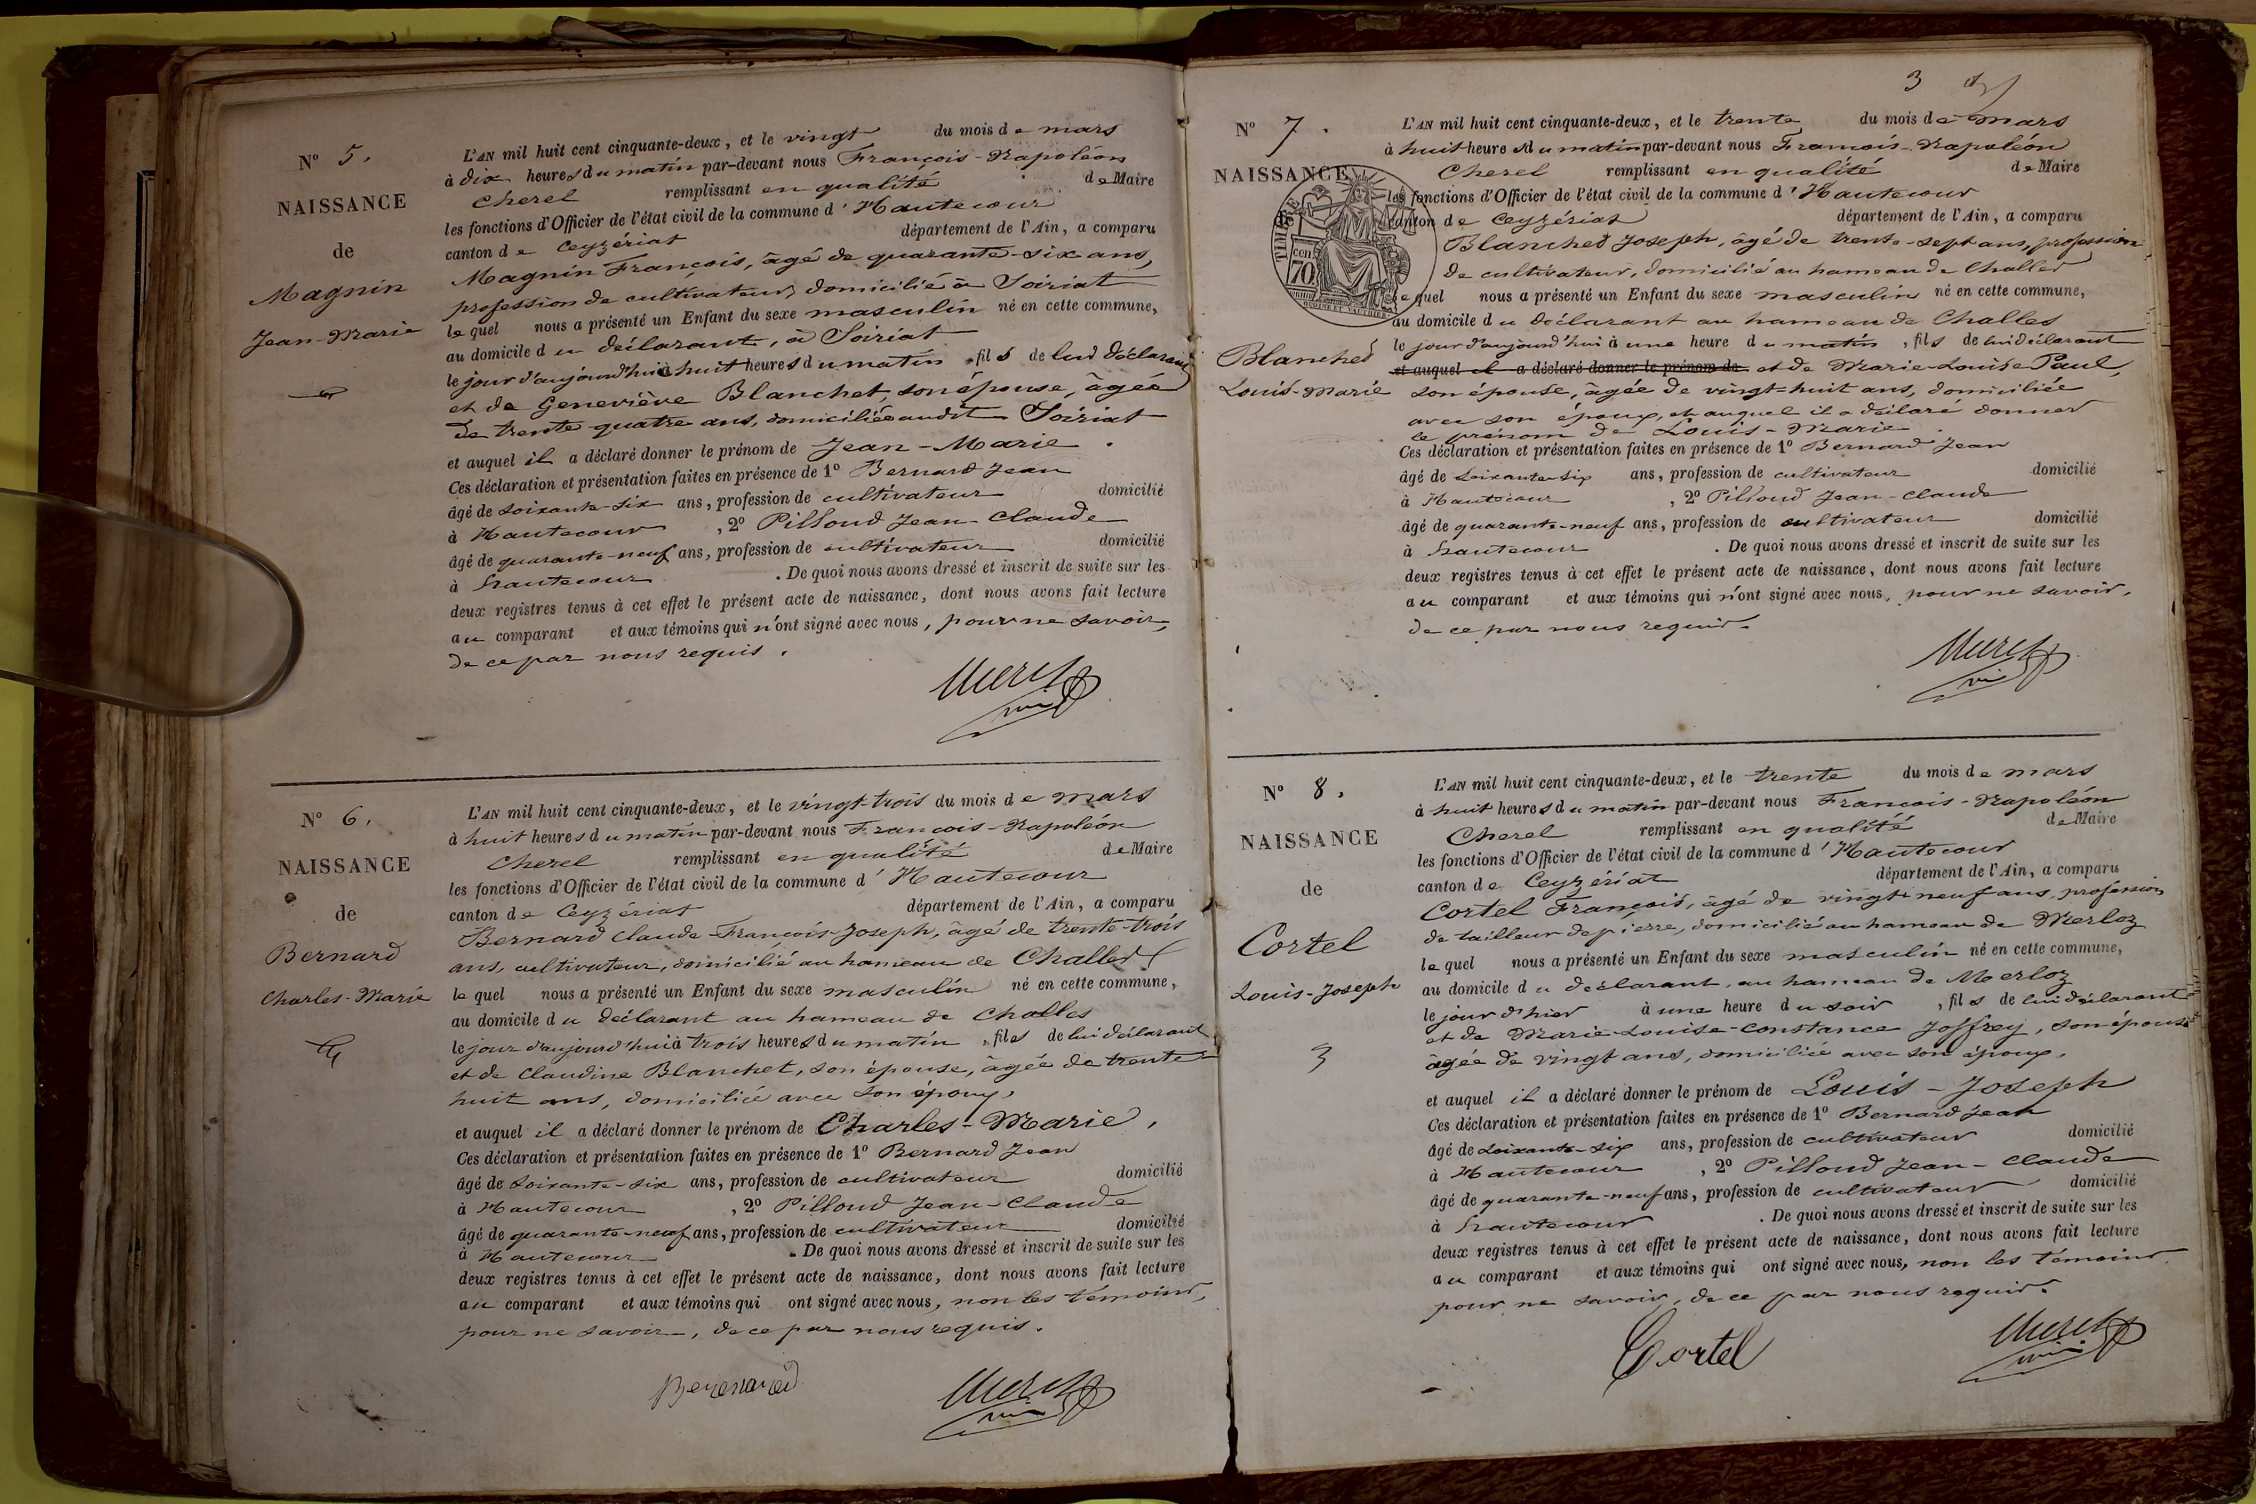 N° 5.
NAISSANCE
de
Magnin
Jean-Marie
L'AN mil huit cent cinquante-deux, et le vingt du mois de mars
à dix heures du matin par-devant nous François-Napoléon
Cherel remplissant en qualité de Maire
les fonctions d'Officier de l'état civil de la commune d'Hautecour
canton de Ceyzériat département de l'Ain, a comparu
Magnin François, âgé de quarante-six ans,
profession de cultivateur, domicilié à Soiriat
lequel nous a présenté un Enfant du sexe masculin né en cette commune,
au domicile du déclarant, à Soiriat
le jour d'aujourd'hui à huit heures du matin, fils de lui déclarant
et de Geneviève Blanchet, son épouse, âgée
de trente-quatre ans, domiciliée audit Soiriat
et auquel il a déclaré donner le prénom de Jean-Marie.
Ces déclaration et présentation faites en présence de 1° Bernard Jean
âgé de soixante-six ans, profession de cultivateur domicilié
à Hautecour, 2° Pilloud Jean-Claude
âgé de quarante-neuf ans, profession de cultivateur domicilié
à hautecour. De quoi nous avons dressé et inscrit de suite sur les
deux registres tenus à cet effet le présent acte de naissance, dont nous avons fait lecture
au comparant et aux témoins qui n'ont signé avec nous, pour ne savoir,
de ce par nous requis.
N° 6.
NAISSANCE
de
Bernard
Charles-Marie
L'AN mil huit cent cinquante-deux, et le vingt-trois du mois de mars
à huit heures du matin par-devant nous François-Napoléon
Cherel remplissant en qualité de Maire
les fonctions d'Officier de l'état civil de la commune d'Hautecour
canton de Ceyzériat département de l'Ain, a comparu
Bernard Claude-François-Joseph, âgé de trente-trois
ans, cultivateur, domicilié au hameau de Challes
lequel nous a présenté un Enfant du sexe masculin né en cette commune,
au domicile du déclarant au hameau de Challes
le jour d'aujourd'hui à trois heures du matin, fils de lui déclarant
et de Claudine Blanchet, son épouse, âgée de trente-
huit ans, domicilié avec son époux,
et auquel il a déclaré donner le prénom de Charles-Marie,
Ces déclaration et présentation faites en présence de 1° Bernard Jean
âgé de soixante-six ans, profession de cultivateur domicilié
à Hautecour, 2° Pilloud Jean-Claude
âgé de quarante-neuf ans, profession de cultivateur domicilié
à Hautecour. De quoi nous avons dressé et inscrit de suite sur les
deux registres tenus à cet effet le présent acte de naissance, dont nous avons fait lecture
au comparant et aux témoins qui ont signé avec nous, non les témoins,
pour ne savoir, de ce par nous requis.
3
N° 7.
NAISSANCE
de
TIMBRE
70 cen
Blanchet
Louis-Marie
L'AN mil huit cent cinquante-deux, et le trente du mois de mars
à huit heures du matin par-devant nous François-Napoléon
Cherel remplissant en qualité de Maire
les fonctions d'Officier de l'état civil de la commune d'Hautecour
canton de Ceyzériat département de l'Ain, a comparu
Blanchet Joseph, âgé de trente-sept ans, profession
de cultivateur, domicilié au hameau de Challes
lequel nous a présenté un Enfant du sexe masculin né en cette commune,
au domicile du déclarant au hameau de Challes
le jour d'aujourd'hui à une heure du matin, fils de lui déclarant
et auquel il a déclaré donner le prénom de et de Marie-Louise Paul,
son épouse, âgée de vingt-huit ans, domiciliée
avec son époux, et auquel il a déclaré donner
le prénom de Louis-Marie.
Ces déclaration et présentation faites en présence de 1° Bernard Jean
âgé de soixante-six ans, profession de cultivateur domicilié
à Hautecour, 2° Pilloud Jean-Claude
âgé de quarante-neuf ans, profession de cultivateur domicilié
à hautecour. De quoi nous avons dressé et inscrit de suite sur les
deux registres tenus à cet effet le présent acte de naissance, dont nous avons fait lecture
au comparant et aux témoins qui n'ont signé avec nous, pour ne savoir,
de ce par nous requis.
N° 8.
NAISSANCE
de
Cortel
Louis-Joseph
3
L'AN mil huit cent cinquante-deux, et le trente du mois de mars
à huit heures du matin par-devant nous François-Napoléon
Cherel remplissant en qualité de Maire
les fonctions d'Officier de l'état civil de la commune d'Hautecour
canton de Ceyzériat département de l'Ain, a comparu
Cortel François, âgé de vingt-neuf ans, profession
de tailleur de pierre, domicilié au hameau de Merloz
lequel nous a présenté un Enfant du sexe masculin né en cette commune,
au domicile du déclarant, au hameau de Merloz
le jour d'hier à une heure du soir, fils de lui déclarant
et de Marie-Louise-Constance Joffrey, son épouse
âgée de vingt ans, domiciliée avec son époux,
et auquel il a déclaré donner le prénom de Louis-Joseph
Ces déclaration et présentation faites en présence de 1° Bernard Jean
âgé de soixante-six ans, profession de cultivateur domicilié
à Hautecour, 2° Pilloud Jean-Claude
âgé de quarante-neuf ans, profession de cultivateur domicilié
à hautecour. De quoi nous avons dressé et inscrit de suite sur les
deux registres tenus à cet effet le présent acte de naissance, dont nous avons fait lecture
au comparant et aux témoins qui ont signé avec nous, non les témoins
pour ne savoir, de ce par nous requis.
Cortel